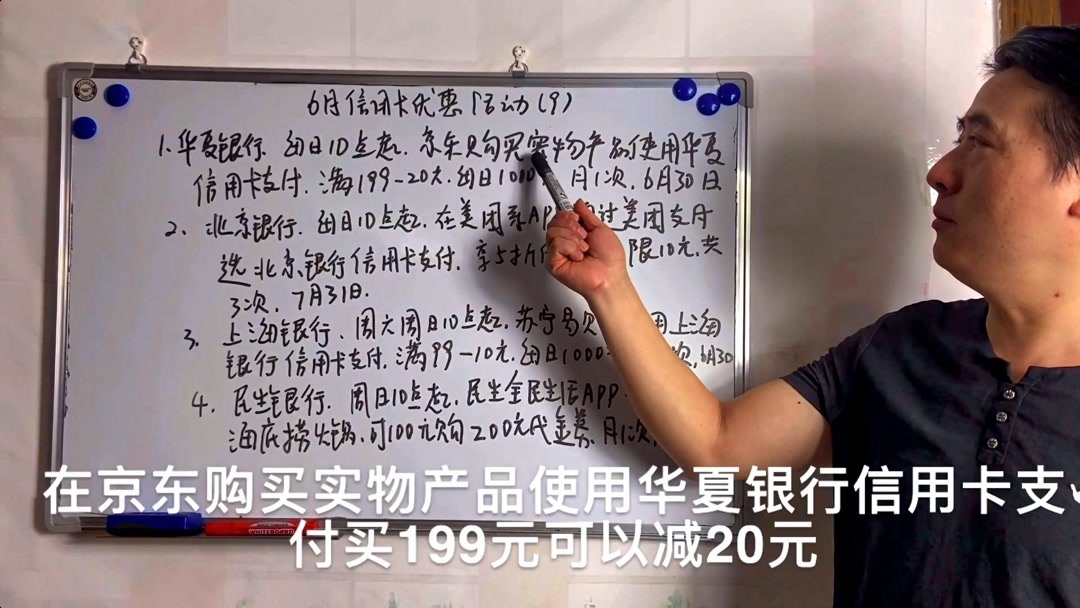 6月信用卡优惠活动(9)
1、华夏银行、每日10点起、京东购买实物产品使用华夏
信用卡支付、满199-20元、每日1000 月1次、6月30日
2、北京银行、每日10点起、在美团系AP 通过美团支付
选北京银行信用卡支付、享5折 限10元、共
3次、7月31日.
3、上海银行、周六周日10点起、苏宁易购 用上海
银行信用卡支付、满99-10元、每日1000 次、6月30
4、民生银行、周日10点起、民生全民生活APP、
海底捞火锅、可100元购200元代金券、月1次、
在京东购买实物产品使用华夏银行信用卡支
付买199元可以减20元